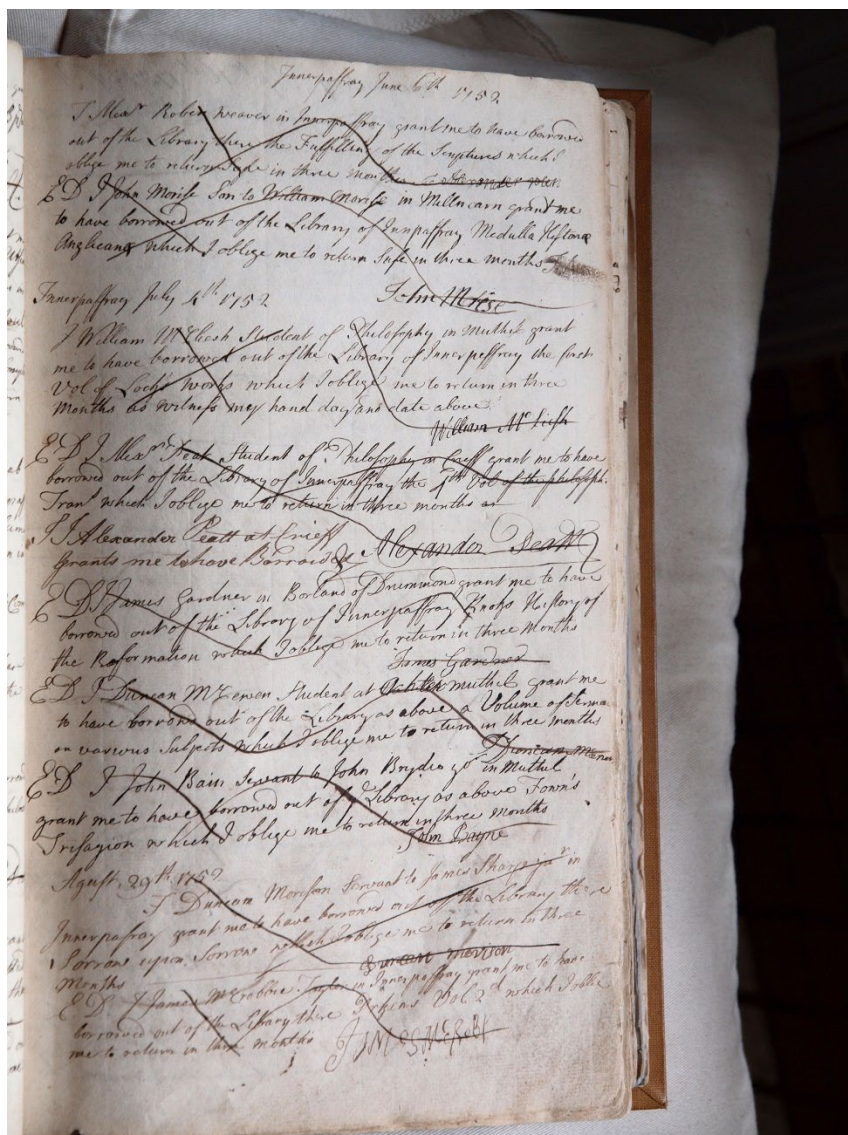 Innerpaffray June 6th 1752
I Alexr Robie weaver in Innerpaffray grant me to have borrowed
out of the Library there the Fulfilling of the Scriptures which I
oblige me to return Safe in three months
ED I John Morise Son to William Morise in Millnearn grant me
to have borrowed out of the Library of Innpaffray Medulla Historæ
Anglicanæ which I oblige me to return Safe in three months
John Morise
Innerpaffray July 4th 1752
I William McLiesh Student of Philosophy in Muthel grant
me to have borrowed out of the Library of Innerpeffray the first
Vol of Lock's works which I oblige me to return in three
Months as witness my hand day and date above
William Mc Liesh
ED I Alexr Peat Student of Philosophy in Crieff grant me to have
borrowed out of the Library of Innerpaffray the 4th Vol of the philosoph.
Trans which I oblige me to return in three months as
I Alexander Peatt at Crieff
Grants me to have Borroid Alexander Peatt
ED I James Gardner in Borland of Drummond grant me to have
borrowed out of the Library of Innerpaffray Knoks History of
the Reformation which I oblige me to return in three Months
James Gardner
ED I Duncan McEwen Student at Muthel grant me
to have borrowd out of the Library as above a Volume of Serma
on various Subjects which I oblige me to return in three months
Duncan
ED I John Bain Servant to John Bryden in Muthel
grant me to have borrowed out of ye Library as above Fown's
Trisagion which I oblige me to return in three months
John Bayne
Agust 29th 1752
I Duncan Morison Servant to James Sharp in
Innerpafray grant me to have borrowed out of the Library there
Sorrow upon Sorrow which I oblige me to return in three
Months Duncan Morison
ED I James McCrobbie Taylor in Innerpaffray grant me to have
borrowed out of the Library there Perkins Vol 2d which I oblie
me to return in three months